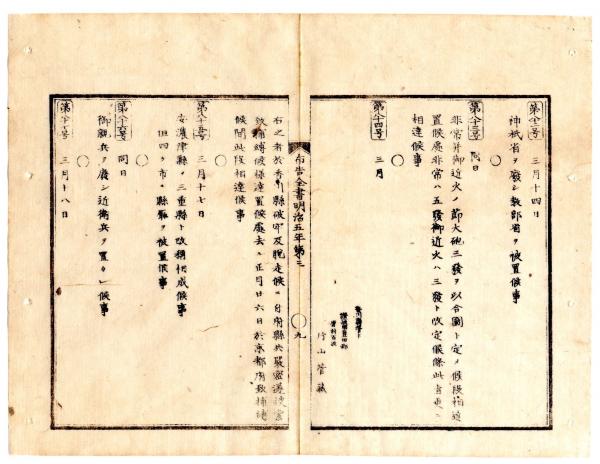 第八十二号 三月十四日
神祇省ヲ廃シ教部省ヲ被置候事
○
第八十三号 同日
非常并御近火ノ節大砲三發ヲ以合圖ト定メ候段相達
置候處非常ハ五發御近火ハ三發ト改定候條此旨更ニ
相達候事
○
第八十四号 三月
香川縣管下
讃岐國豊田郡
片山菅蔵
布告全書明治五年第三 ○ 九
右之者於香川縣破牢及脱走候ニ付府縣共嚴密遂捜索
致捕縛候様達置候處去ル正月廿六日於京都府致捕縛
候間此段相達候事
○
第八十五号 三月十七日
安濃津縣ヲ三重縣ト改稱相成候事
但四ヶ市ヘ縣廳ヲ被置候事
○
第八十六号 同日
御親兵ヲ廃シ近衛兵ヲ置カレ候事
○
第八十七号 三月十八日